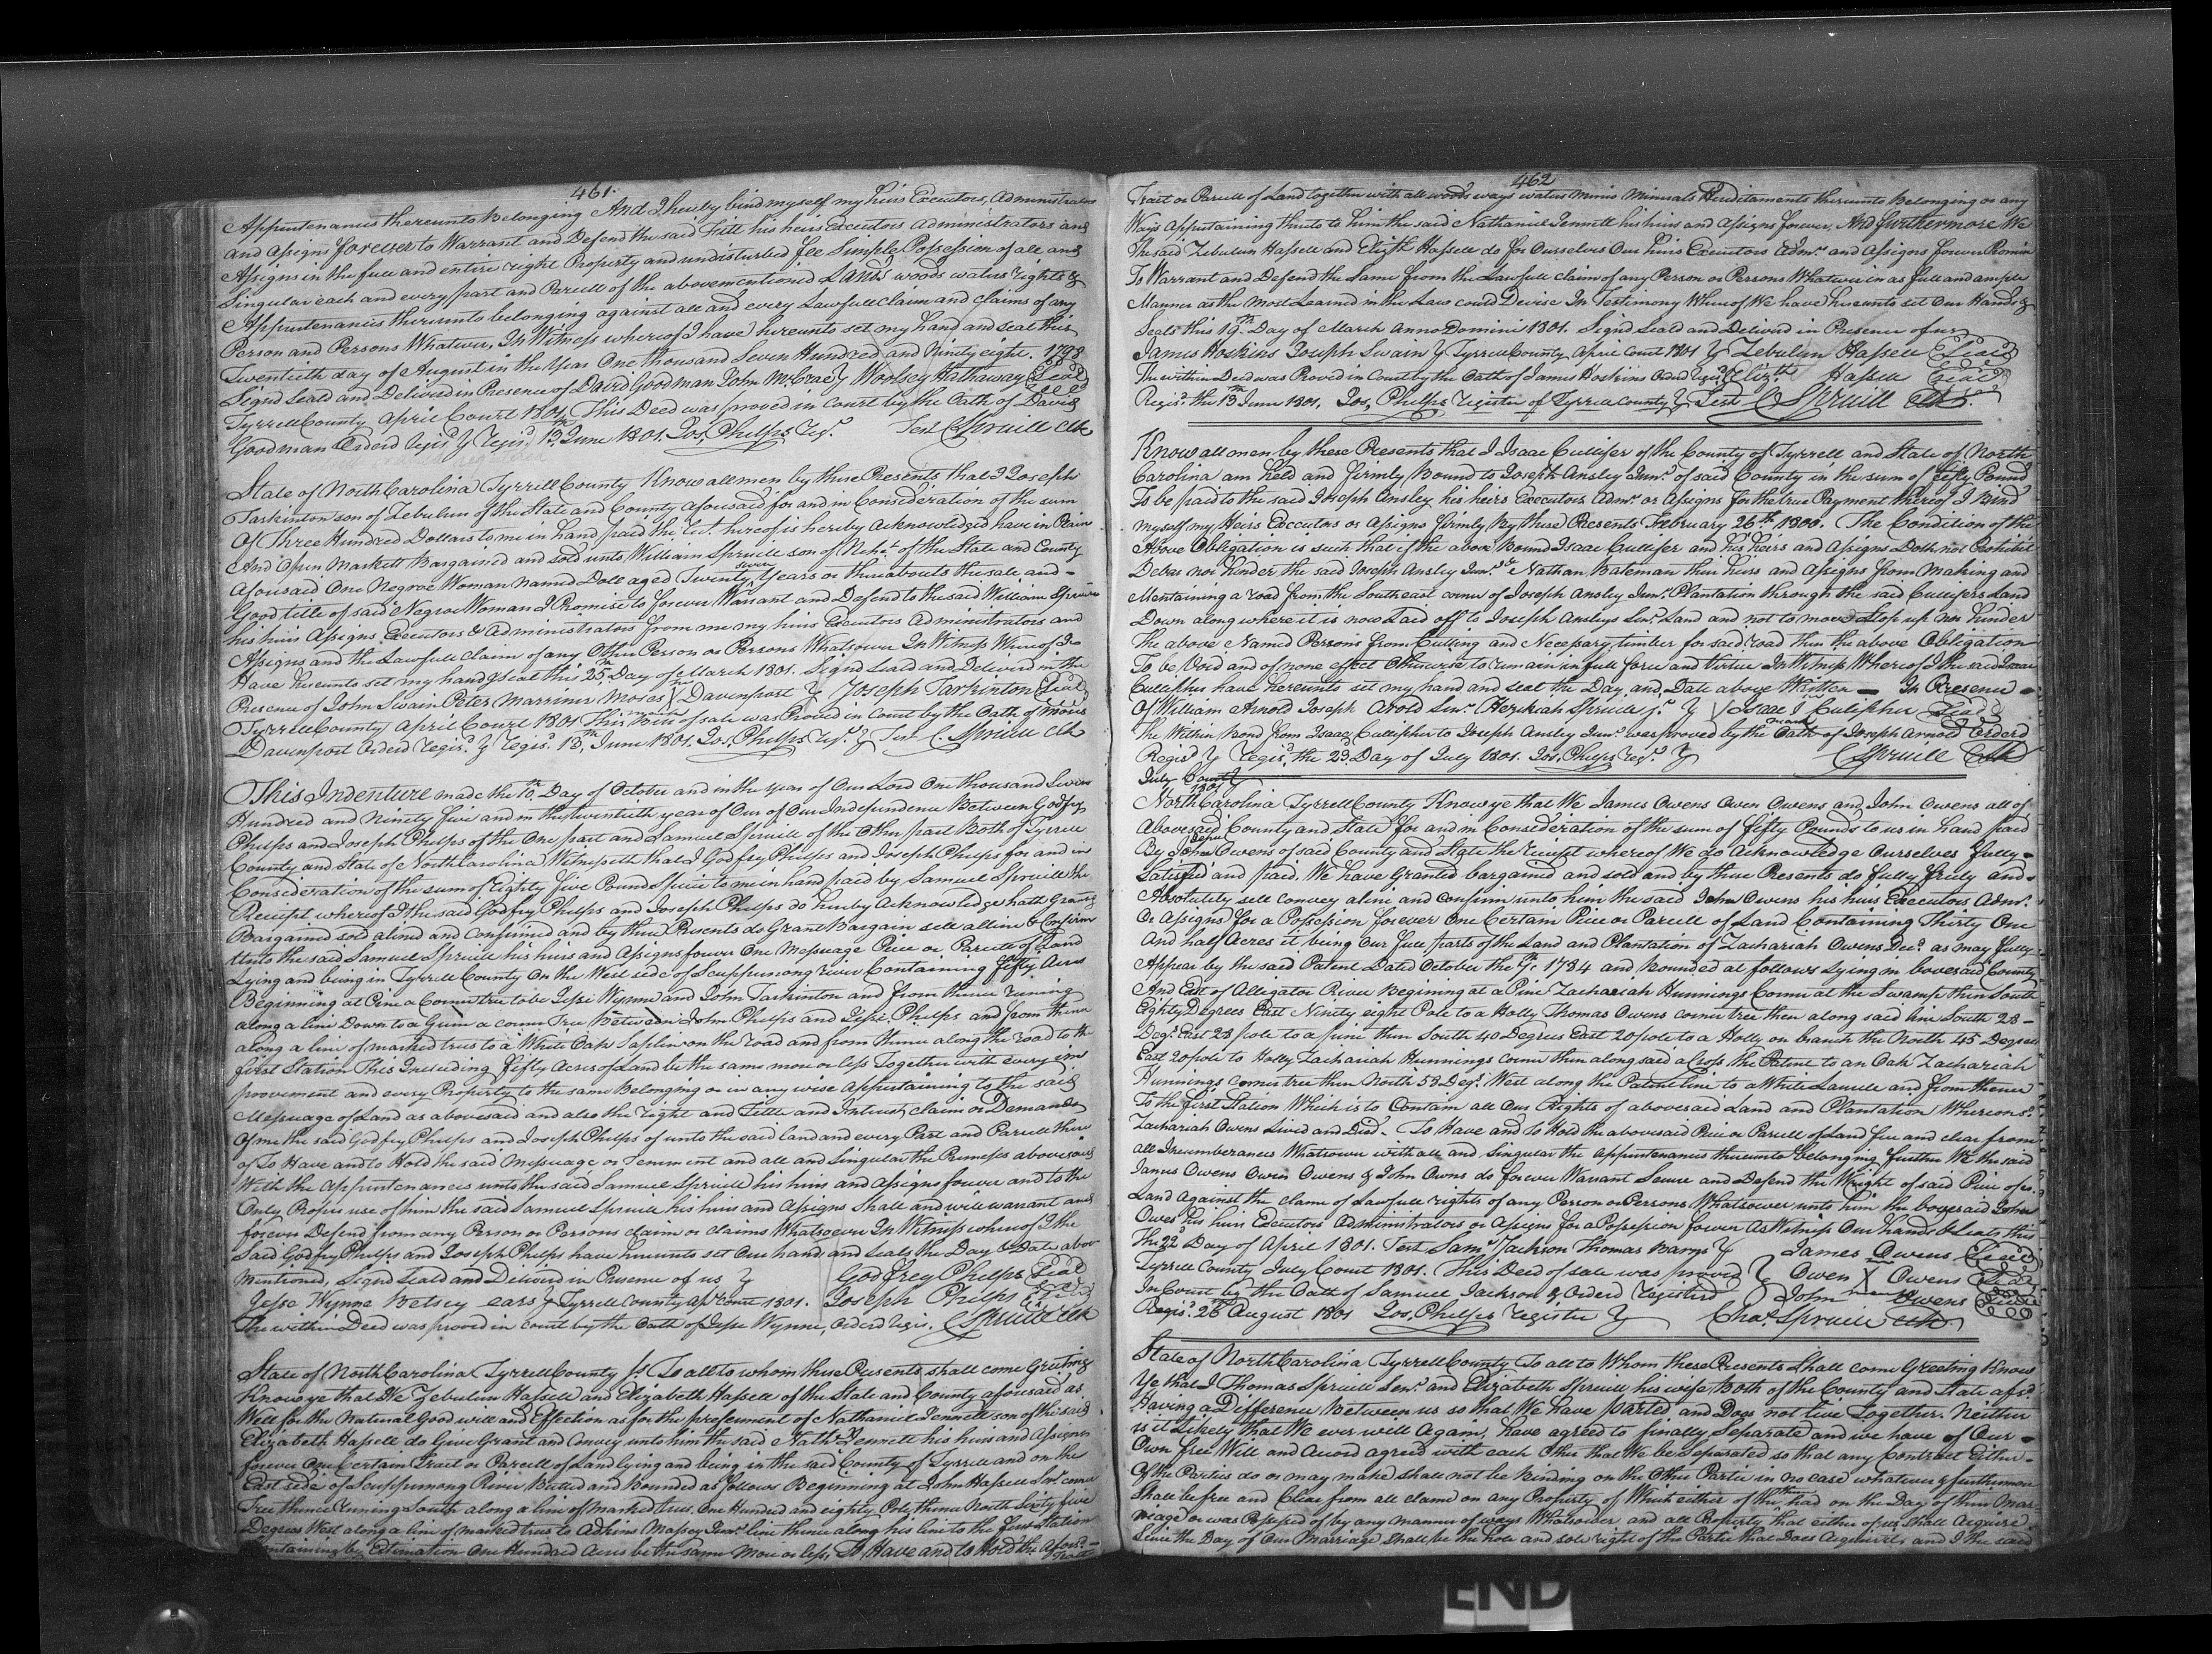 461.
Appurtenances thereunto Belonging And I hereby bind myself my heirs Executors, Administrators
and Assigns forever to Warrant and Defend the said Fitt his heirs Executors Administrators and
Assigns in the full and entire right Property and undisturbed fee Simple Possession of all and
Singular each and every part and Parcell of the abovementioned Lands woods waters rights &
Appurtenances thereunto belonging against all and every Lawfull Claim and Claims of any
Person and Persons Whatever, In Witness whereof I have hereunto set my hand and seal this
Twentieth day of August in the Year One thousand Seven Hundred and Ninety eight. 1798
Signd Seald and Deliverd in Presence of David Goodman John McCrae } Woolsey Hathaway Seal
Tyrrell County April Court 1801, This Deed was proved in Court by the Oath of David
Goodman Orderd Regisd } Regisd 13th June 1801. Jos, Phelps Regr. Test C Spruill Clk
State of North Carolina Tyrrell County Know all men by these Presents that I Joseph
Tarkinton son of Zebulun of the State and County Aforesaid for and in Consideration of the sum
Of Three Hundred Dollars to me in hand paid the Rect. hereof is hereby Acknowledged have in Plain
And Open Markett Bargained and sold unto William Spruill son of Nehe. of the State and County
Aforesaid One Negroe Woman named Doll aged Twenty seven Years or thereabouts the sale and -
Good title of said Negroe Woman I Promise to forever Warrant and Defend to the said William Spruill
his heirs Assigns Executors & Administrators from me my heirs Executors Administrators and
Assigns and the Lawfull Claim of any Other Person or Persons Whatsoever In Witness Whereof I -
Have hereunto set my hand & seal this 25th Day of March 1801. Signd Seald and Deliverd in the
Presence of John Swain Peter Marriner Moses X Davenport } Joseph Tarkinton Seal
Tyrrell County April Court 1801 This Bill of sale was Proved in Court by the Oath of Moses
Davenport Orderd Regisd. } Regisd. 13th June 1801. Jos, Phelps Regr. } Test C Spruill Clk
This Indenture made the 10th Day of October and in the year of Our Lord One thousand Seven
Hundred and Ninety five and in the twentieth year of Our of Our Independence Between Godfry
Phelps and Joseph Phelps of the One part and Samuel Spruill of the Other part Both of Tyrrell
County and State of North Carolina Witnesseth that I Godfry Phelps and Joseph Phelps for and in
Consideration of the sum of Eighty five Pound Specie to me in hand paid by Samuel Spruill the
Receipt whereof I the said Godfry Phelps and Joseph Phelps do hereby Acknowledge hath Granted
Bargained sold alined and Confirmed and by these Presents do Grant Bargain sell alline & Confirm
Unto the said Samuel Spruill his heirs and Assigns forever One Messuage Piece or Parcell of Land
Lying and being in Tyrrell County On the West side of Scuppernong river Containing fifty Acres
Beginning at Pine a Corner tree to be Jesse Wynne and John Tarkinton and from thence runing
along a line Down to a Gum a corner Tree Between John Phelps and Jesse Phelps and from thence
along a line of marked trees to a White Oak Saplin on the road and from thence along the road to the
first Station This Including Fifty Acres of Land be the same more or less Together with every im
proovement and every Property to the same Belonging or in any wise Appertaining to the said
Messuage of Land as abovesaid and also the right and Title and Interest claim or Demands
Of me the said Godfry Phelps and Joseph Phelps of unto the said land and every Part and Parcell there
of To Have and to Hold the said Messuage or Tenement and all and singular the Premeses abovesaid
With the Appurtenances unto the said Samuel Spruill his heirs and Assigns forever and to the
Only Proper use of him the said Samuel Spruill his heirs and Assigns Shall and will warrant and
forever Defend from any Person or Persons claim or claims Whatsoever In Witness whereof I the
Said Godfry Phelps and Joseph Phelps have hereunto set Our hand and Seals the Day & Date above
Mentioned, Signd Seald and Deliverd in Presence of us } Godfrey Phelps Seal
Jesse Wynne Betsey ears } Tyrrell County Apr Court 1801. Joseph Phelps Seal
The within Deed was proved in Court by the Oath of Jesse Wynne, Orderd Regis. C Spruill Clk
State of North Carolina Tyrrell County Ss. To all to whom these Presents shall come Greeting
Know ye that We Zebulun Hassell and Elizabeth Hassell of the State and County aforesaid as
Well for the Natural Good will and Effection as for the preferment of Nathaniel Jennett son of the said
Elizabeth Hassell do Give Grant and Convey unto him the said Nathl Jennett his heirs and Assigns
forever One Certain Tract or Parcell of Land lying and being in the said County of Tyrrell and on the
East side of Scuppernong River Butted and Bounded as follows Beginning at John Hassell Senr corner
Tree thence Runing South along a line of marked trees. One Hundred and eighty Pole thence North Sixty five
Degrees West along a line of marked trees to Adkins Massey Junr. line thence along his line to the first Station
Containing by Estimation One Hundred Acres be the same More or less, To Have and to Hold the Aforesd. -
Tract
462
Tract or Parcell of Land together with all woods ways waters Mines Minerals Heriditaments thereunto Belonging or any
Ways Appertaining thereto to him the said Nathaniel Jennett his heirs and Assigns forever, And furthermore We
The said Zebulun Hassell and Elizth Hassell do for Ourselves Our heirs Executors Admrs. and Assigns forever Promise
To Warrant and Defend the Same from the Lawfull claim of any Person or Persons Whatever in as full and ample
Manner as the Most Learned in the Law could Devise In Testimony Whereof We have hereunto set Our Hands &
Seals this 19th. Day of March Anno Domini 1801. Signd Seald and Deliverd in Presence of us
James Hoskins Joseph Swain } Tyrrell County April Court 1801 } Zebulun Hassell Seal
The within Deed was Proved in Court by the Oath of James Hoskins Orderd Regisd } Elizth Hassell Seal
Regisd. the 13th June 1801, Jos, Phelps Register of Tyrrell County } Test C Spruill Clk.
Know all men by these Presents that I Isaac Cullifer of the County of Tyrrell and State of North
Carolina am held and firmly Bound to Joseph Ansley Junr. of said County in the sum of fifty Pound
To be paid to the said Joseph Ansley his heirs Executors Admrs. or Assigns for the true Payment thereof I Bind
myself my Heirs Executors or Assigns firmly by these Presents February 26th 1800. The Condition of the
Above Obligation is such that if the above Bound Isaac Cullifer and his heirs and Assigns Doth not Prohibit
Debar nor hinder the said Joseph Ansley Junr. & Nathan Bateman their heirs and Assigns from Making and
Mentaining a road from the Southeast corner of Joseph Ansley Junr. Plantation through the said Cullifers Land
Down along where it is now Laid off to Joseph Ansleys Senr. Land and not to move Stop up nor hinder
The above Named Persons from Cutting and Necessary timber for said road then the above Obligation
To be Void and of none effect Otherwise to remain in full force and Virtue In Witness Whereof I the said Isaac
Cullifher have hereunto set my hand and seal the Day and Date above Written — In Presence -
Of William Arnold Joseph Arold Senr. Hezekiah Spruill jr. } Isaac I Culipher Seal
mark
The Within Bond from Isaac Cullipher to Joseph Ansley Junr. was proved by the Oath of Joseph Arnold Orderd
Regisd } Regisd. the 23d. Day of July 1801. Jos, Phelps Regr. } C Spruill Clk
July Court 1801 }
North Carolina Tyrrell County Know ye that We James Owens Owen Owens and John Owens all of
Abovesaid County and State for and in Consideration of the sum of fifty Pounds to us in hand paid
By John Owens of said County and State the reciept whereof We do Acknowledge Ourselves fully -
Satisfied and paid, We have Granted bargained and sold and by these Presents do fully freely and -
Absolutely sell convey aline and confirm unto him the said John Owens his heirs Executors Admrs.
Or Assigns for a Possession forever One Certain Piece or Parcell of Land Containing Thirty One
And half Acres it being Our full parts of the Land and Plantation of Zachariah Owens Decd. as may fully
Appear by the said Patent Dated October the 7th, 1784 and Bounded as follows Lying in bovesaid County
And East of Alligator River Begining at a Pine Zachariah Hunnings Corner at the Swamp then South
Eighty Degrees East Ninety eight Pole to a Holly Thomas Owens corner tree then along said line South 28 -
Degs. East 28 pole to a pine then South 40 Degrees East 20 pole to a Holly on branch the North 45 Degrees
East 20 pole to Holly Zachariah Hunnings Corner then along said across the Patent to an Oak Zachariah
Hunnings corner tree then North 53 Degs. West along the Patent line to a White Laurell and from thence
To the first Station Which is to Contain all Our Rights of abovesaid Land and Plantation Whereons.
Zachariah Owens Lived and Died. To Have and to Hold the abovesaid Piece or Parcell of Land free and clear from
all Incumberances Whatsoever with all and Singular the Appurtenances thereunto belonging further We the said
James Owens Owen Owens & John Owns do forever Warrant Secure and Defend the Wright of said Piece of
Land Against the claim of Lawfull rights of any Person or Persons Whatsoever unto him the bovesaid John
Owes his heirs Executors Administrators or Assigns for a Possession forever As Witness Our hands & Seals this
The 22 Day of April 1801. Test Saml Jackson Thomas Barns } James Owens Seal
Tyrrell County July Court 1801. This Deed of sale was proved } Owen X Owens Seal
In Court by the Oath of Samuel Jackson & Orderd Registerd } John Owens Seal
Regisd. 26th August 1801 Jos, Phelps Register } Chas. Spruill Clk
State of North Carolina Tyrrell County To all to Whom these Presents Shall come Greeting Know
Ye that I Thomas Spruill Senr. and Elizabeth Spruill his wife Both of the County and State afsd.
Having a Difference Between us so that We have parted and Does not live Together. Neither
is it Likely that We ever will Again, have agreed to finally Separate and we have of Our -
Own free Will and Accord agreed with each Other that We be seperated so that any Contract Either -
Of the Parties do or may make shall not be Binding on the Other Partie in no case whatever & furthermore
Shall be free and Clear from all claims on any Property of Which either of the them had on the Day of their Mar
reage or was Possesed of by any manner of ways Whatsoever and all Property that either of us Shall Acquire
Since the Day of Our Marriage Shall be the hole and sole right of the Partie that Does Acquire it, and I the said
END